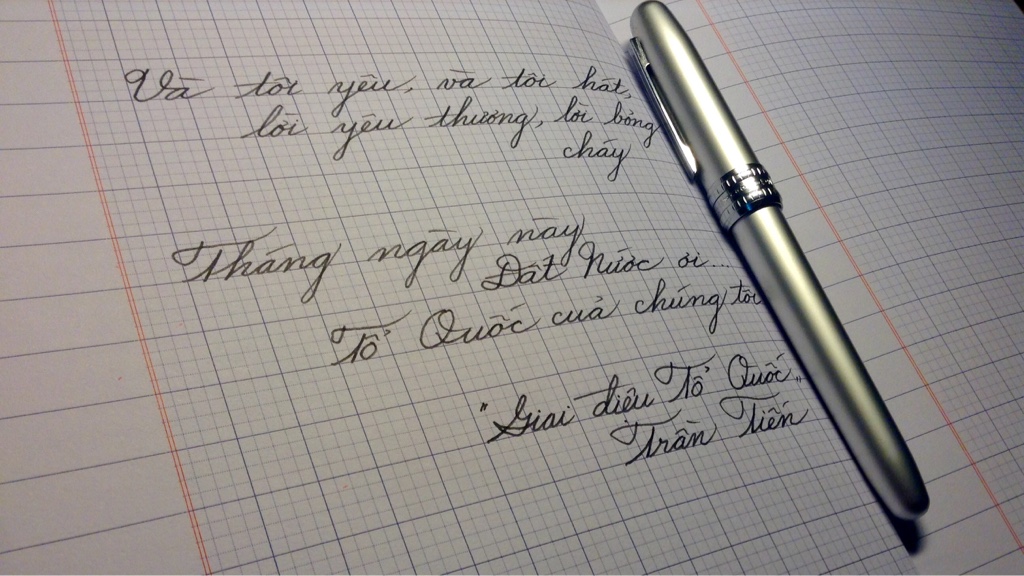 Và tôi yêu, và tôi hát,
lời yêu thương, lời bỏng
cháy
Tháng ngày này
Đất Nước ơi...
Tổ Quốc của chúng tôi
"Giai điệu Tổ Quốc"
Trần Tiến